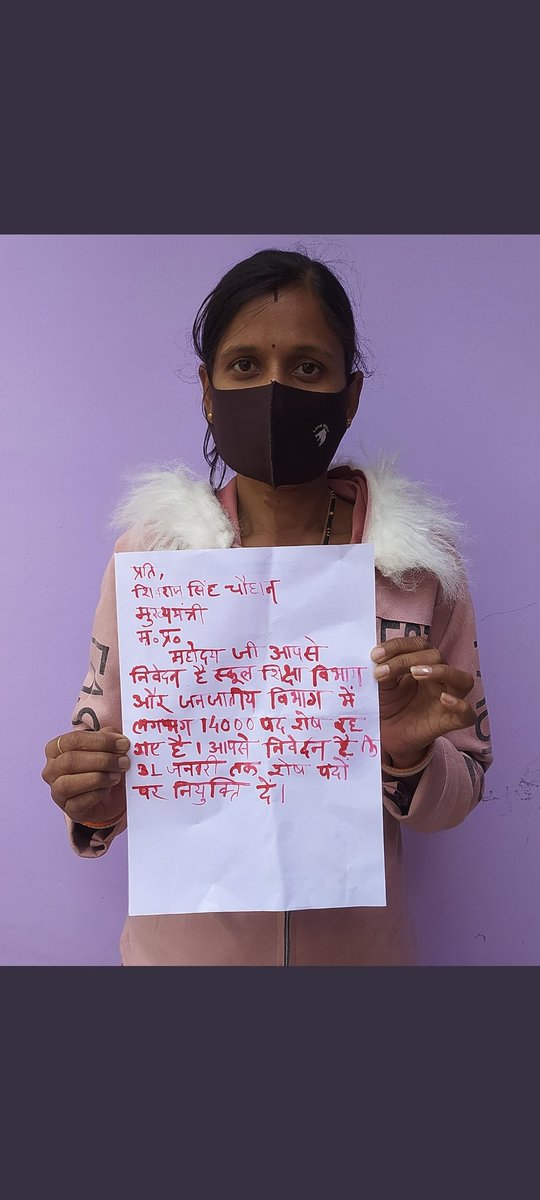 प्रति,
शिवराज सिंह चौहान
मुख्यमंत्री
म॰प्र॰
महोदय जी आपसे
निवेदन है स्कूल शिक्षा विभाग
और जनजातीय विभाग में
लगभग 14000 पद शेष रह
गए है। आपसे निवेदन है कि
31 जनवरी तक शेष पदों
पर नियुक्ति दें।